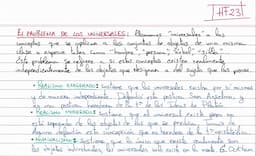 HF23
EL PROBLEMA DE LOS UNIVERSALES: Llamamos "universales" a los
conceptos que se aplican a los conjuntos de objetos de una misma
clase o especie tales como "hombre", "persona", "árbol", "silla"...
Este problema se refiere a si estos conceptos existen realmente,
independientemente de los objetos que designan o del sujeto que los piensa.
• REALISMO EXAGERADO: Sostiene que los universales existen por sí mismos
y de manera independiente. Defendió esta postura San Anselmo, y
es una postura heredera de la tª de las Ideas de Platón.
• REALISMO MODERADO: Sostiene que el universal existe pero no
está separado de los objetos de los que se predica. Tomás de
Aquino defendió esta concepción que es heredera de la tª aristotélica.
• NOMINALISMO: Sostiene que lo único que existe realmente son
los objetos individuales, los universales solo